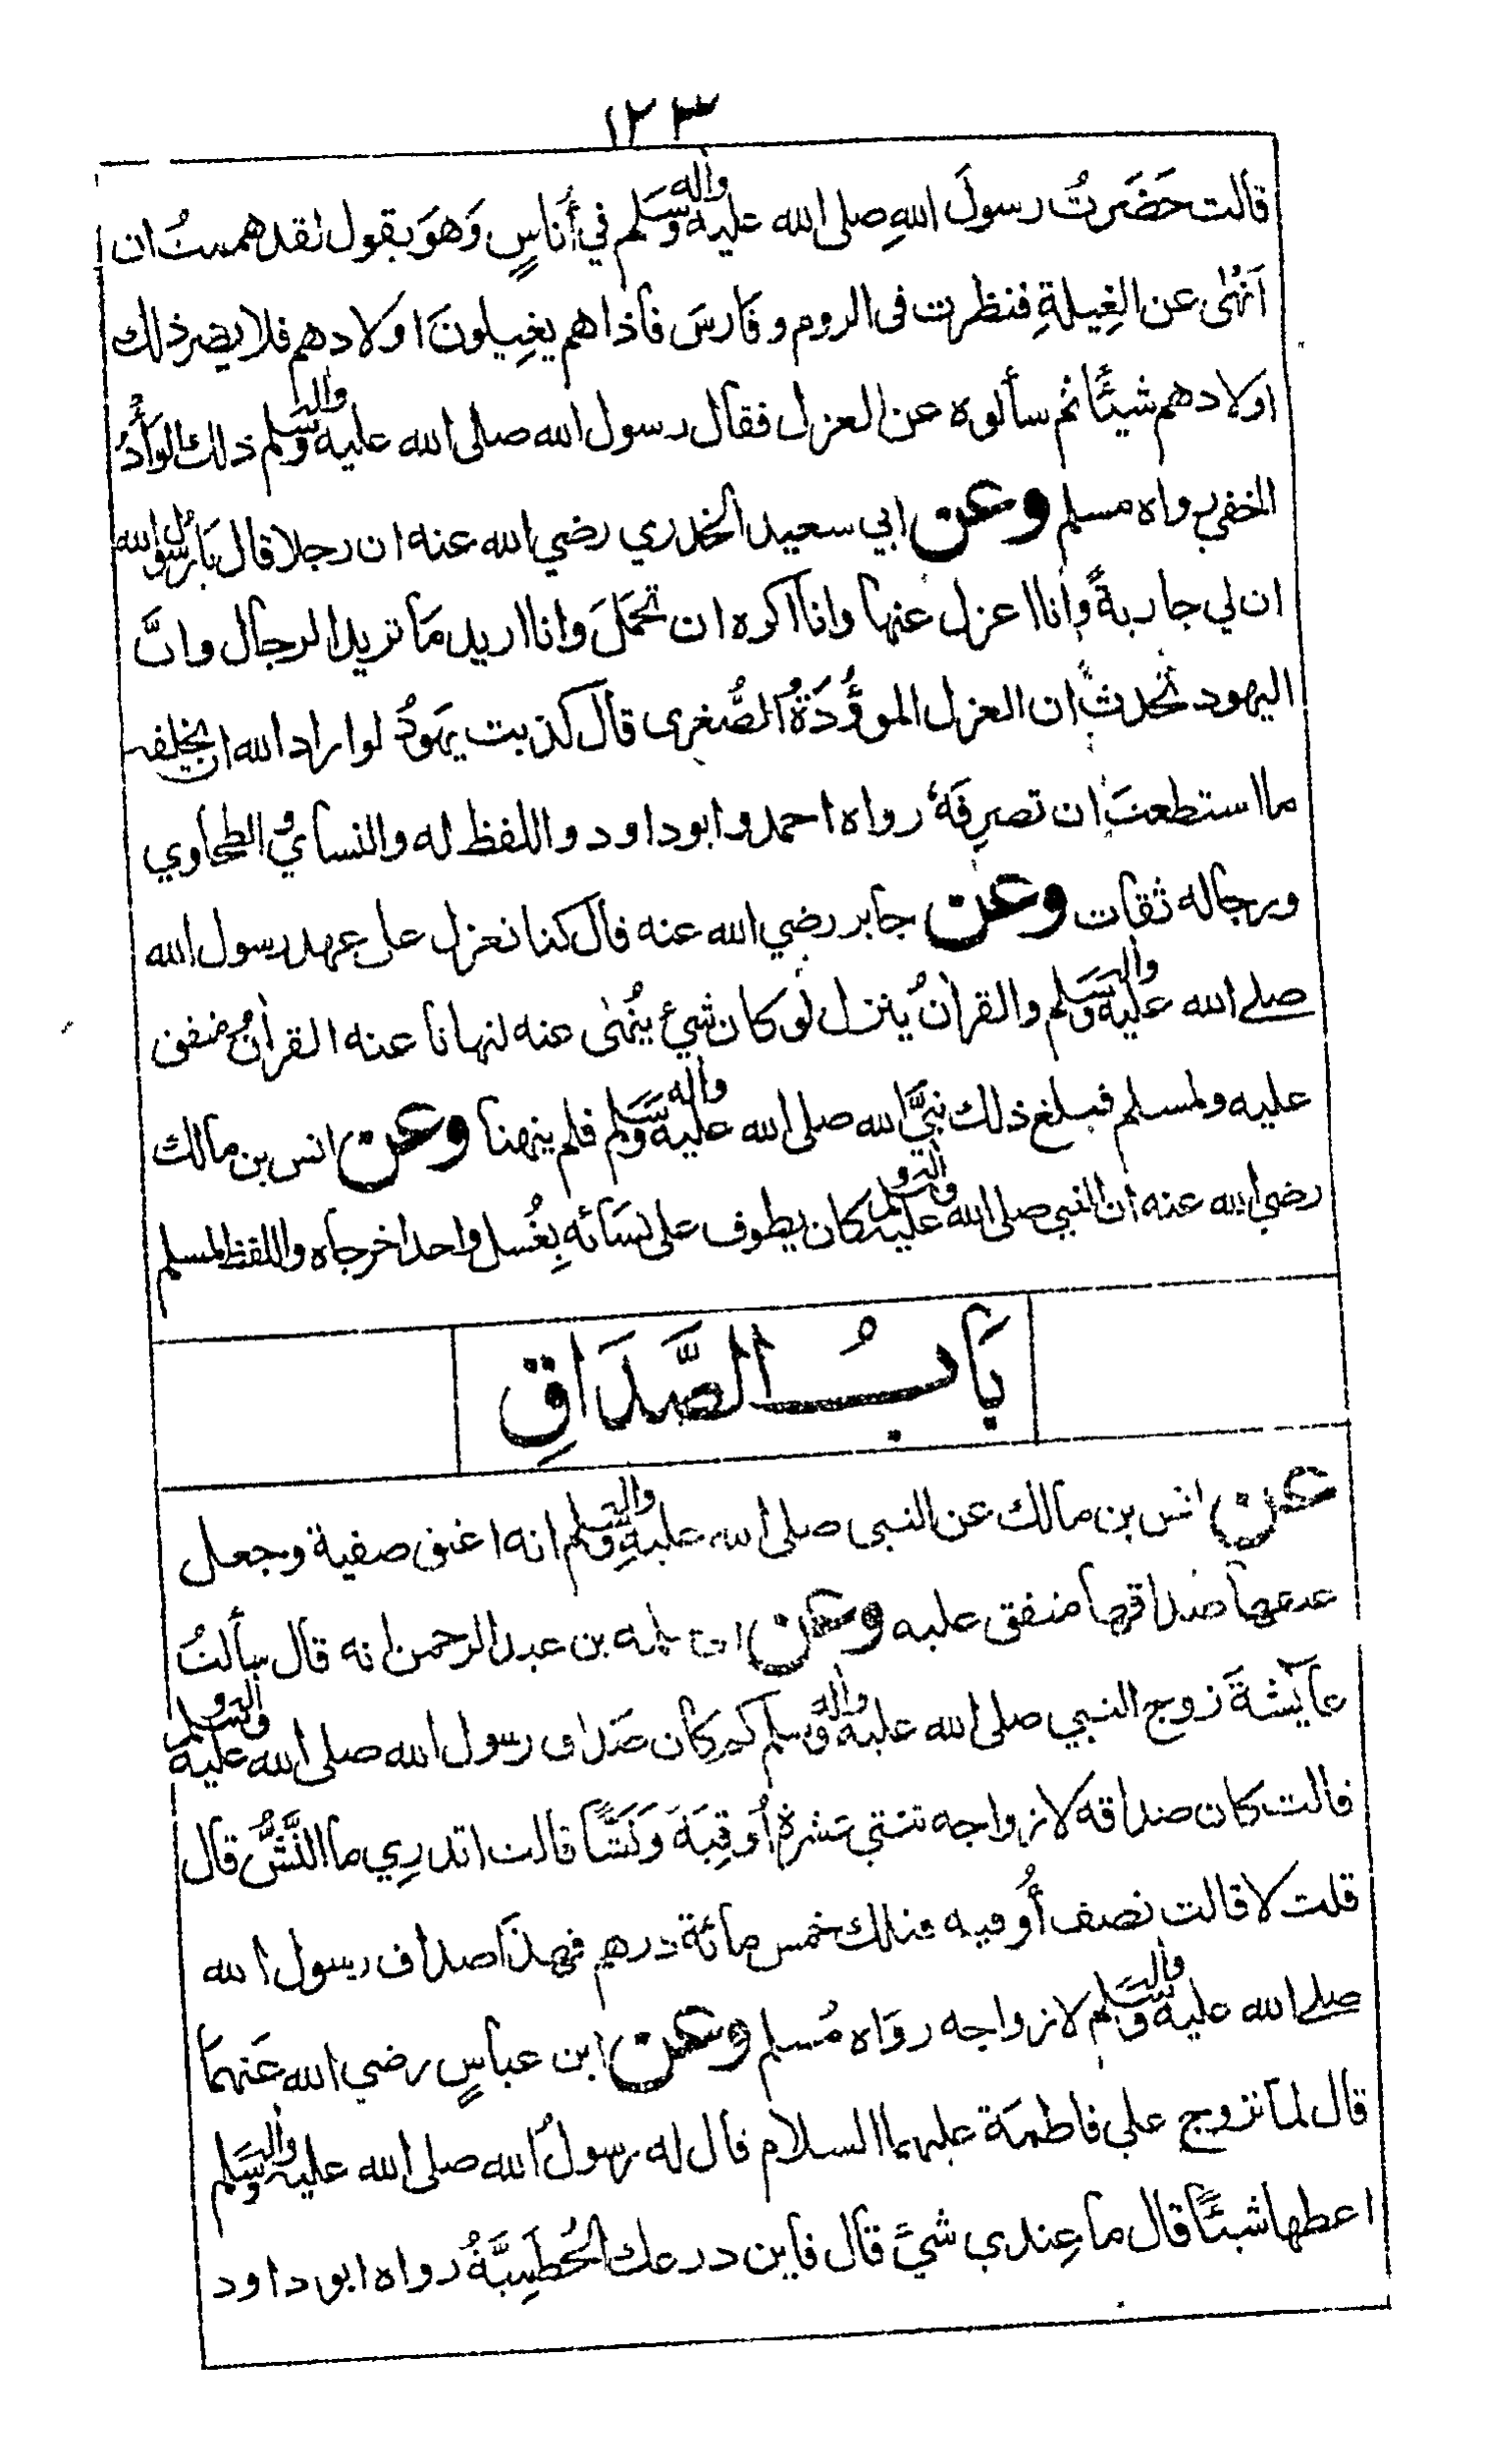 ١٢٣
قالت حَضَرتُ رسولَ اللهِ صلى الله عليه وآله وسَلم في أُناسٍ وَهوَ يقول لقد هممتُ ان
آنهٰى عن الغِيلةِ فنظرت فى الروم وفارسَ فاذا هم يغِيلونَ اولادهم فلا يضر ذلك
اولادهم شيئًا ثم سألوه عن العزل فقال رسول الله صلى الله عليه وآله وسلم ذلك الوَأْدُ
الخفي رواه مسلم وعن ابي سعيد الخدري رضي الله عنه ان رجلا قال يا رسول الله
ان لي جاريةً وانا اعزل عنها وانا اكره ان تحمَلَ وانا اريد ما تريد الرجال وانَّ
اليهود تحدثُ ان العزل الموؤُدَةُ الصُّغرى قال كذبت يهودُ لو اراد الله ان يخلقه
ما استطعتَ ان تصرِفَهُ رواه احمد وابو داود واللفظ له والنسائي والطحاوي
ورجاله ثقات وعن جابر رضي الله عنه قال كنا نعزل على عهد رسول الله
صلے الله عليه وآله وسَلم والقرآنُ يُنزل لو كان شيئ يُنهٰى عنه لنهانا عنه القرآنُ متفق
عليه ولمسلم فبلغ ذلك نبيَّ الله صلى الله عليه وآله وسَلم فلم ينهنا وعن انس بن مالك
رضي الله عنه ان النبي صلى الله عليه وآله وسلم كان يطوف على نسائه بِغُسل واحد اخرجاه واللفظ لمسلم
بَابُ الصَّدَاقِ
عن انس بن مالك عن النبى صلى الله عليهِ وآله وسلم انه اعتق صفية وجعل
عتقها صداقها متفق عليه وعن ابي سلمه بن عبد الرحمن انه قال سألتُ
عآيشةَ زوج النبي صلى الله عليه وآله وسلم كم كان صَداق رسول الله صلى الله عليه وآله وسلم
قالت كان صداقه لازواجه ثنتي عشرة أُوقِيَةَ وَنَشًّا قالت اتدرِي ما النَّشُّ قال
قلت لا قالت نصف أُوقيه فتلك خمس مائة درهم فهذا صداق رسول الله
صلے الله عليه وآله وسَلم لازواجه روَاه مُسلم وعن ابن عباسٍ رضي الله عَنهمَا
قال لما تزوج علي فاطمَة عليهما السلام قال له رسولُ الله صلى الله عليه وآله وسَلم
اعطها شيئًا قال ما عِندي شيئٌ قال فاين درعك الحُطَمِيَّةُ رواه ابو داود